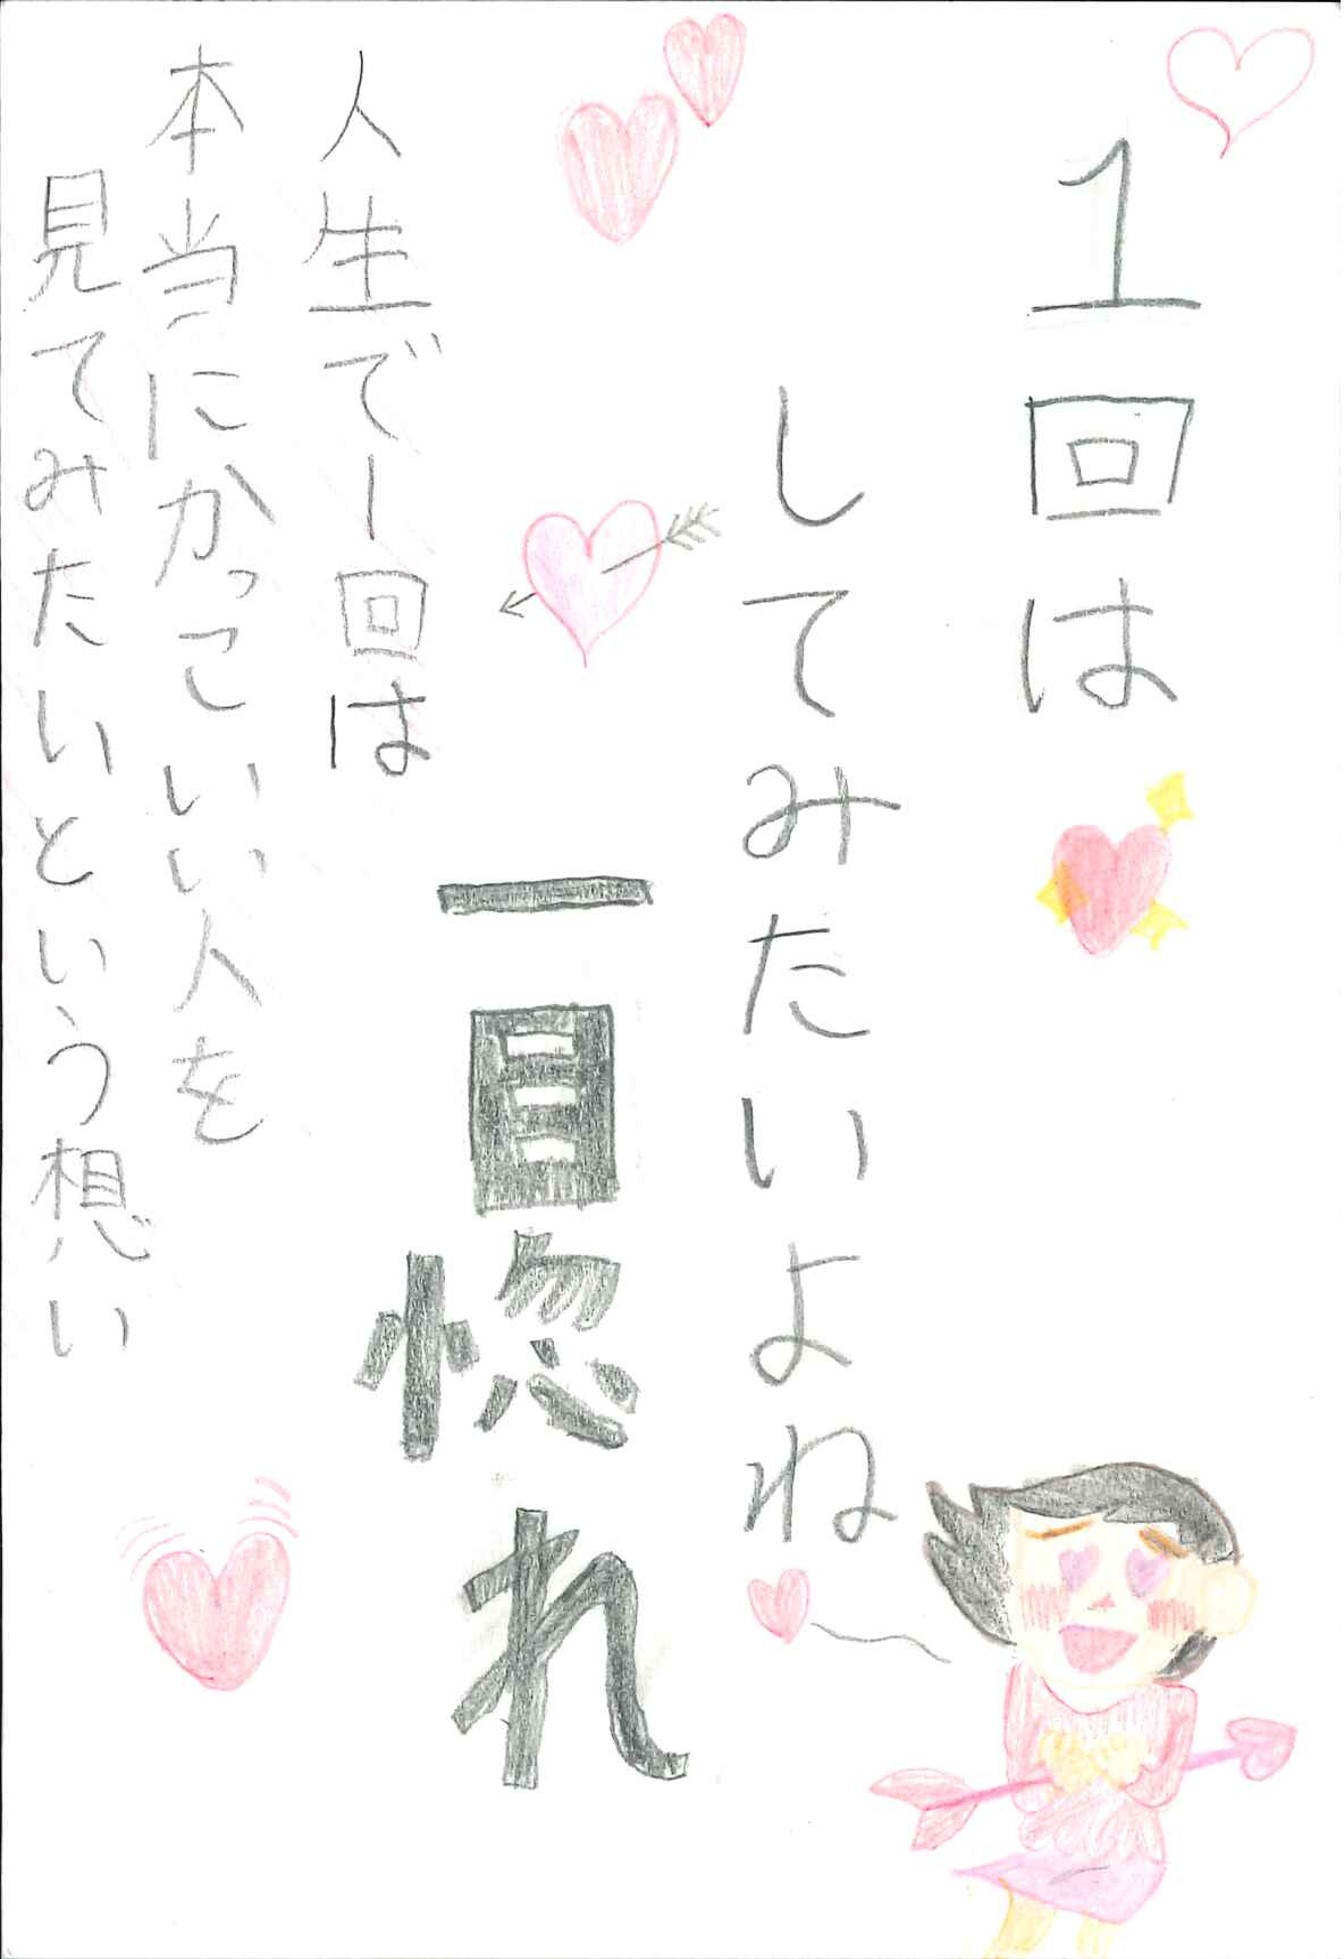 1回は
してみたいよね
一目惚れ
人生で一回は
本当にかっこいい人を
見てみたいという想い